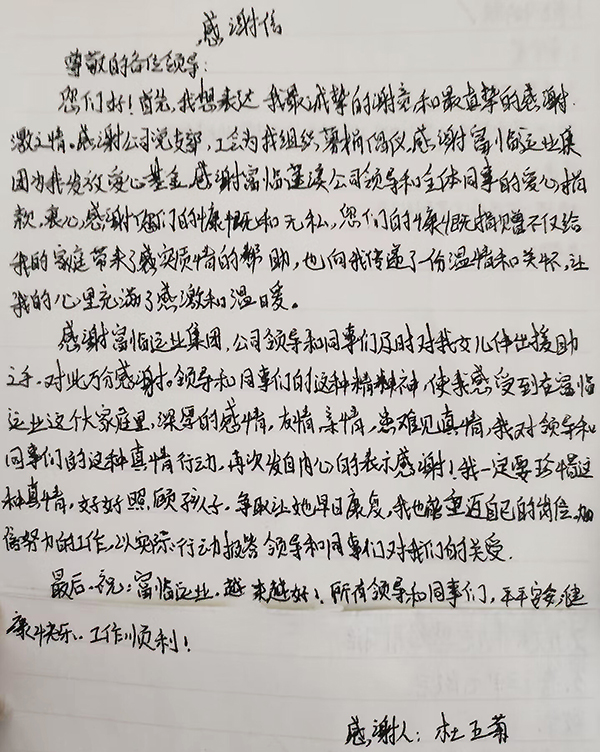 感谢信
尊敬的各位领导:
您们好!首先,我想表达我最诚挚的谢意和最真挚的感谢
激之情。感谢公司党支部,工会为我组织募捐倡仪,感谢富临运业集
团为我发放爱心基金,感谢富临蓬溪公司领导和全体同事的爱心捐
款,衷心感谢你们的慷慨和无私,您们的慷慨捐赠不仅给
我的家庭带来了实质情的帮助,也向我传递了一份温情和关怀,让
我的心里充满了感激和温暖。
感谢富临运业集团,公司领导和同事们及时对我女儿伸出援助
之手。对此万分感谢。领导和同事们的这种精神,使我感受到在富临
运业这个大家庭里,深厚的感情,友情,亲情,患难见真情,我对领导和
同事们的这种真情行动,再次发自内心的表示感谢!我一定要珍惜这
种真情,好好照顾孩子,争取让她早日康复,我也能重返自己的岗位,加
倍努力的工作,以实际行动报答领导和同事们对我们的关爱.
最后、祝:富临运业,越来越好!所有领导和同事们,平平安安,健
康快乐、工作顺利!
感谢人:杜玉菊